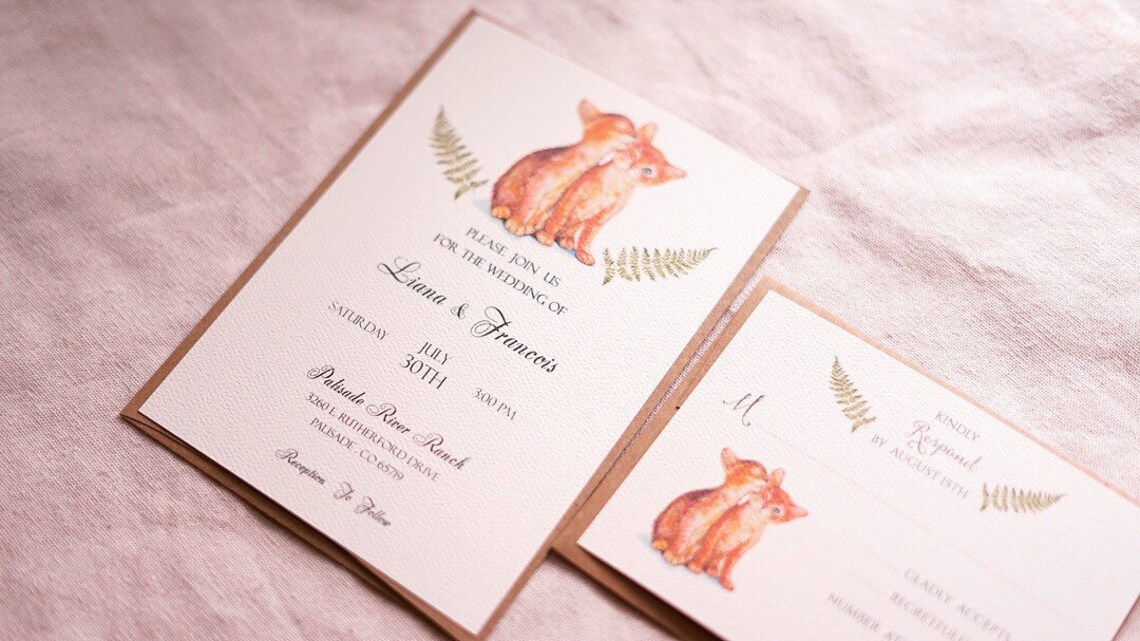 PLEASE JOIN US
FOR THE WEDDING OF
Liana & Francois
SATURDAY
JULY
30TH
3:00 PM
Palisade River Ranch
3260 E. RUTHERFORD DRIVE
PALISADE · CO 65719
Reception To Follow
M
KINDLY
Respond
BY AUGUST 19TH
GLADLY ACCEPT
REGRETFUL
NUMBER AT